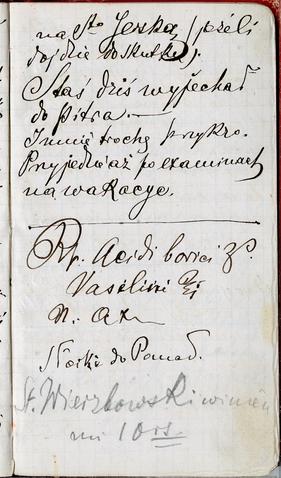 na Sto Jerską, (jeżeli
dojdzie do skutku).
Staś dziś wyjechał
do Pitra.
I mnie trochę przykro.
Przyjedzie aż po examinach
na wakacye.
Rp. Acidi borici
Vaselini
M.
Słoiki do Pomad.
St. Wierzbowski winien
mi 10 rs.